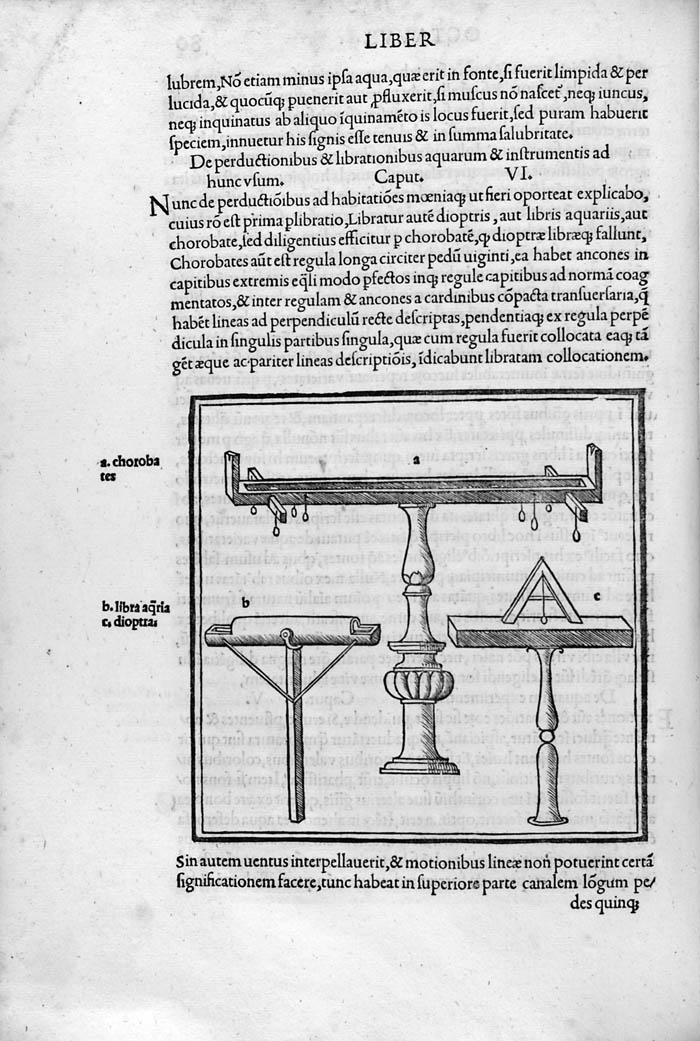 LIBER
lubrem, Nõ etiam minus ipsa aqua, quæ erit in fonte, si fuerit limpida & per
lucida, & quocũq; puenerit aut ꝓfluxerit, si muscus nõ nascet᷑, neq; iuncus,
neq; inquinatus ab aliquo ĩquinamẽto is locus fuerit, sed puram habuerit
speciem, innuetur his signis esse tenuis & in summa salubritate.
De perductionibus & librationibus aquarum & instrumentis ad
hunc vsum. Caput. VI.
Nunc de perductiõibus ad habitatiões mœniaq; ut fieri oporteat explicabo,
cuius rõ est prima plibratio, Libratur autẽ dioptris, aut libris aquariis, aut
chorobate, sed diligentius efficitur p chorobatẽ, q̃ dioptræ libræq; fallunt,
Chorobates aũt est regula longa circiter pedũ uiginti, ea habet ancones in
capitibus extremis eq̃li modo pfectos inq; regule capitibus ad normã coag
mentatos, & inter regulam & ancones a cardinibus cõpacta transuersaria, q̃
habẽt lineas ad perpendiculũ recte descriptas, pendentiaq; ex regula perpẽ
dicula in singulis partibus singula, quæ cum regula fuerit collocata eaq; tã
gẽt æque ac pariter lineas descriptiõis, ĩdicabunt libratam collocationem.
a. choroba
tes
a
b. libra aq̃ria
c. dioptra
b
c
Sin autem uentus interpellauerit, & motionibus lineæ non potuerint certã
significationem facere, tunc habeat in superiore parte canalem lõgum pe/
des quinq;